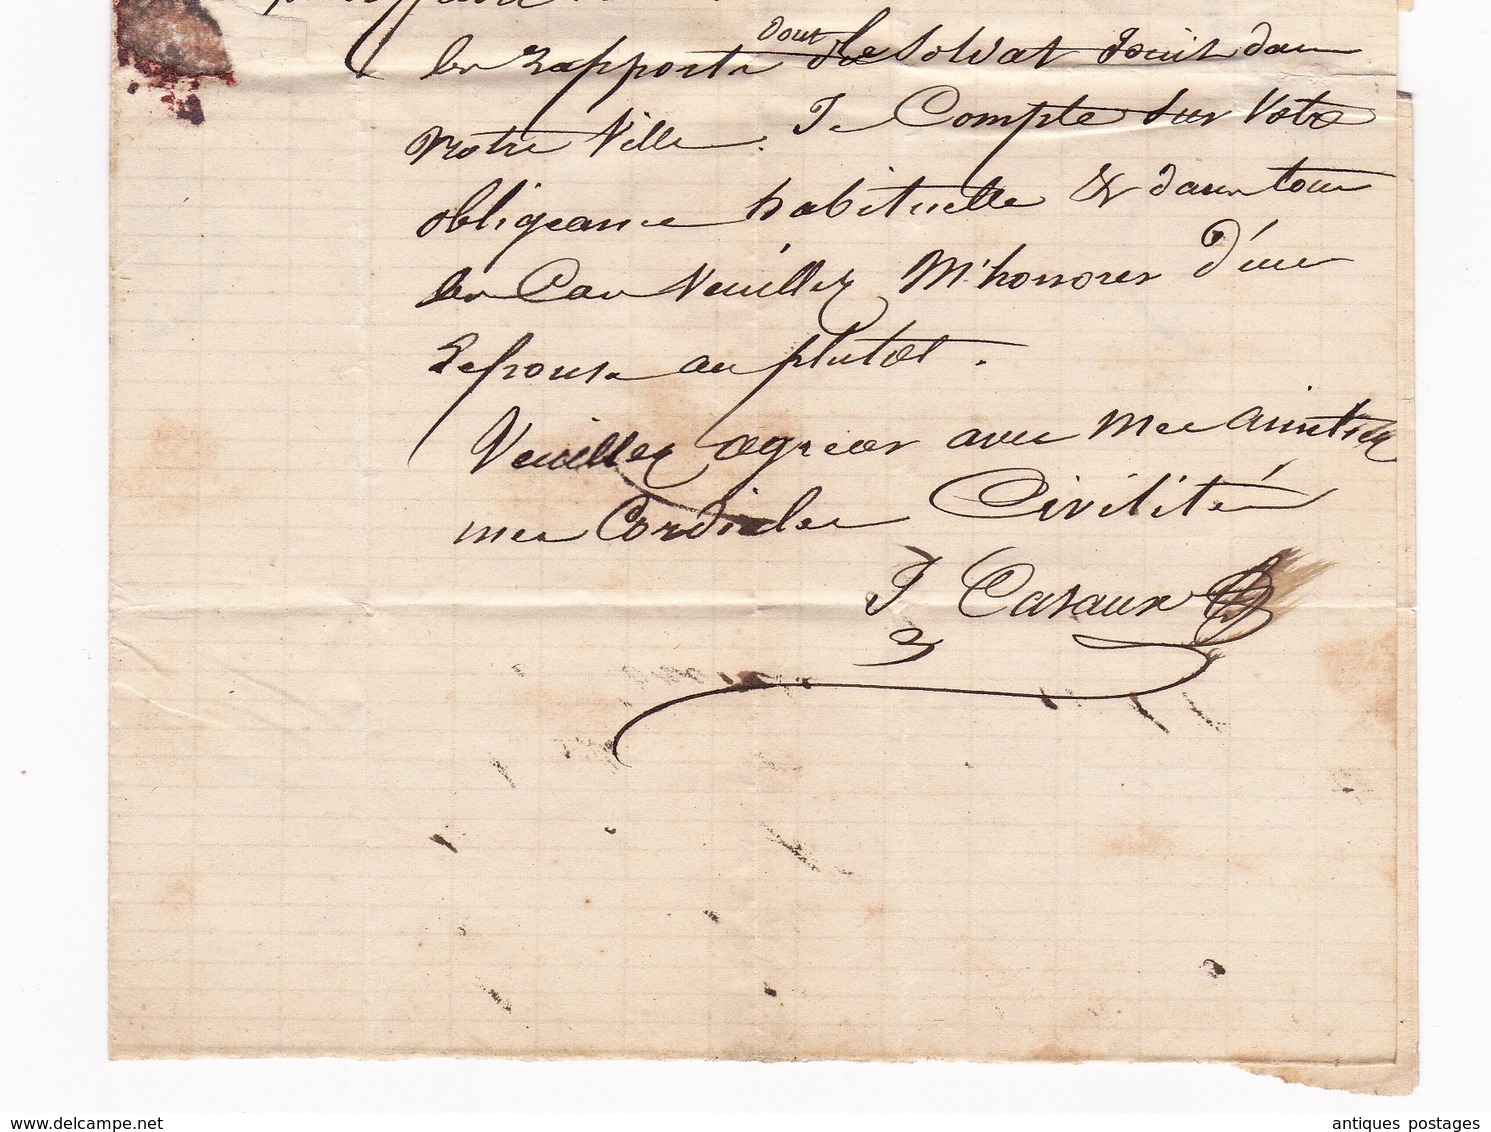 les rapports dont le Soldat Jouit dans
Notre Ville. Je Compte sur Votre
obligeance habituelle & dans tous
les Cas Veuillez M'honorer d'une
Reponse au plutôt.
Veuillez agréer avec mes
mes Cordiales Civilités
J Casaux
www.delcampe.net
antiques postages